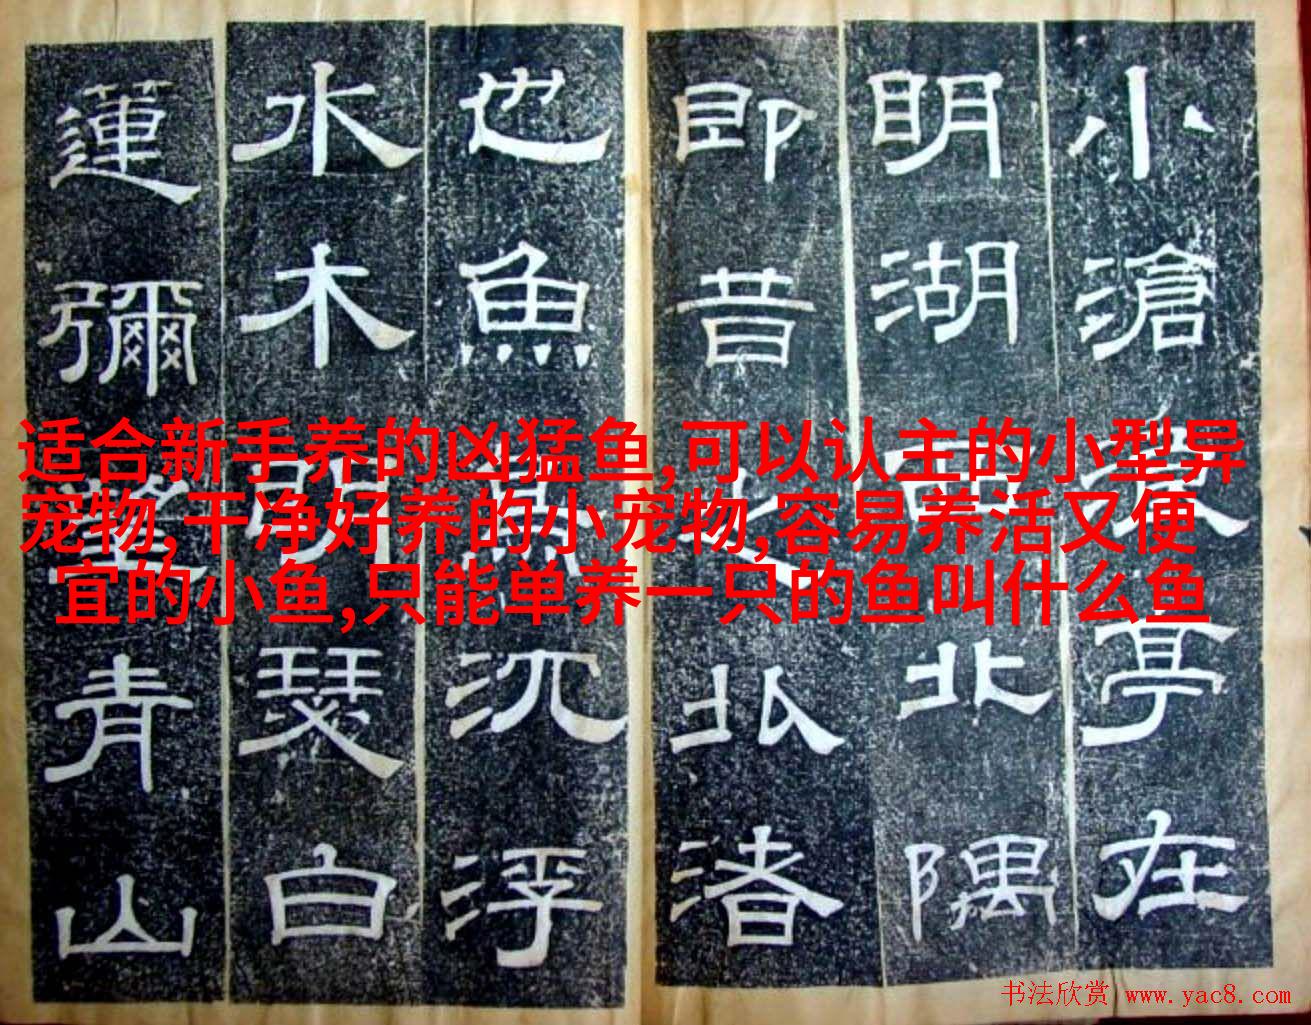 小滄浪亭在
明湖西北隅
即昔之北渚
也魚鳥沉浮
水木明瑟白
蓮彌望青山
适合新手养的凶猛鱼,可以认主的小型异
宠物,干净好养的小宠物,容易养活又便
宜的小鱼,只能单养一只的鱼叫什么鱼
书法欣赏 www.yac8.com